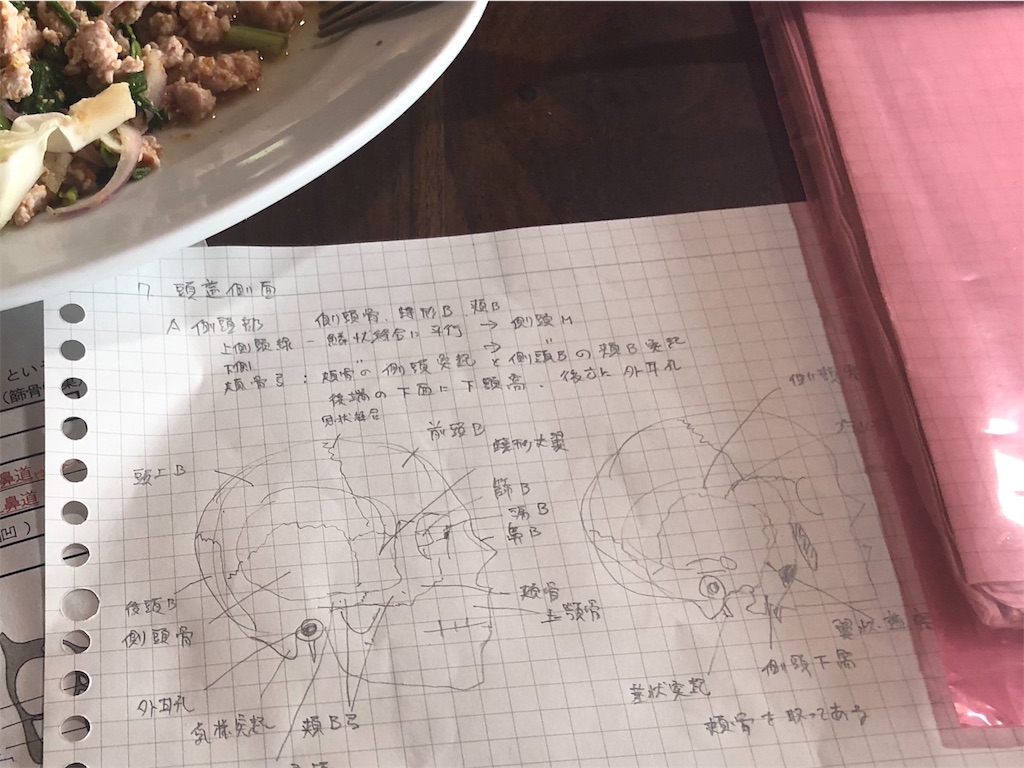 7 頭蓋側面
A 側頭部 側頭骨、蝶形B 頬B
上側頭線 - 鱗状縫合に平行 → 側頭M
下側 〃 → 〃
頬骨弓：頬骨の側頭突起と側頭Bの頬B突起
後端の下面に下顎窩、後方に外耳孔
冠状縫合
前頭B
側頭
頭頂B
蝶形大翼
篩B
涙B
鼻B
という
(篩骨
鼻道
鼻道
凹)
後頭B
側頭骨
頬骨
上顎骨
外耳孔
乳様突起
頬B弓
翼状突起
側頭下窩
茎状突起
頬骨を取ってある